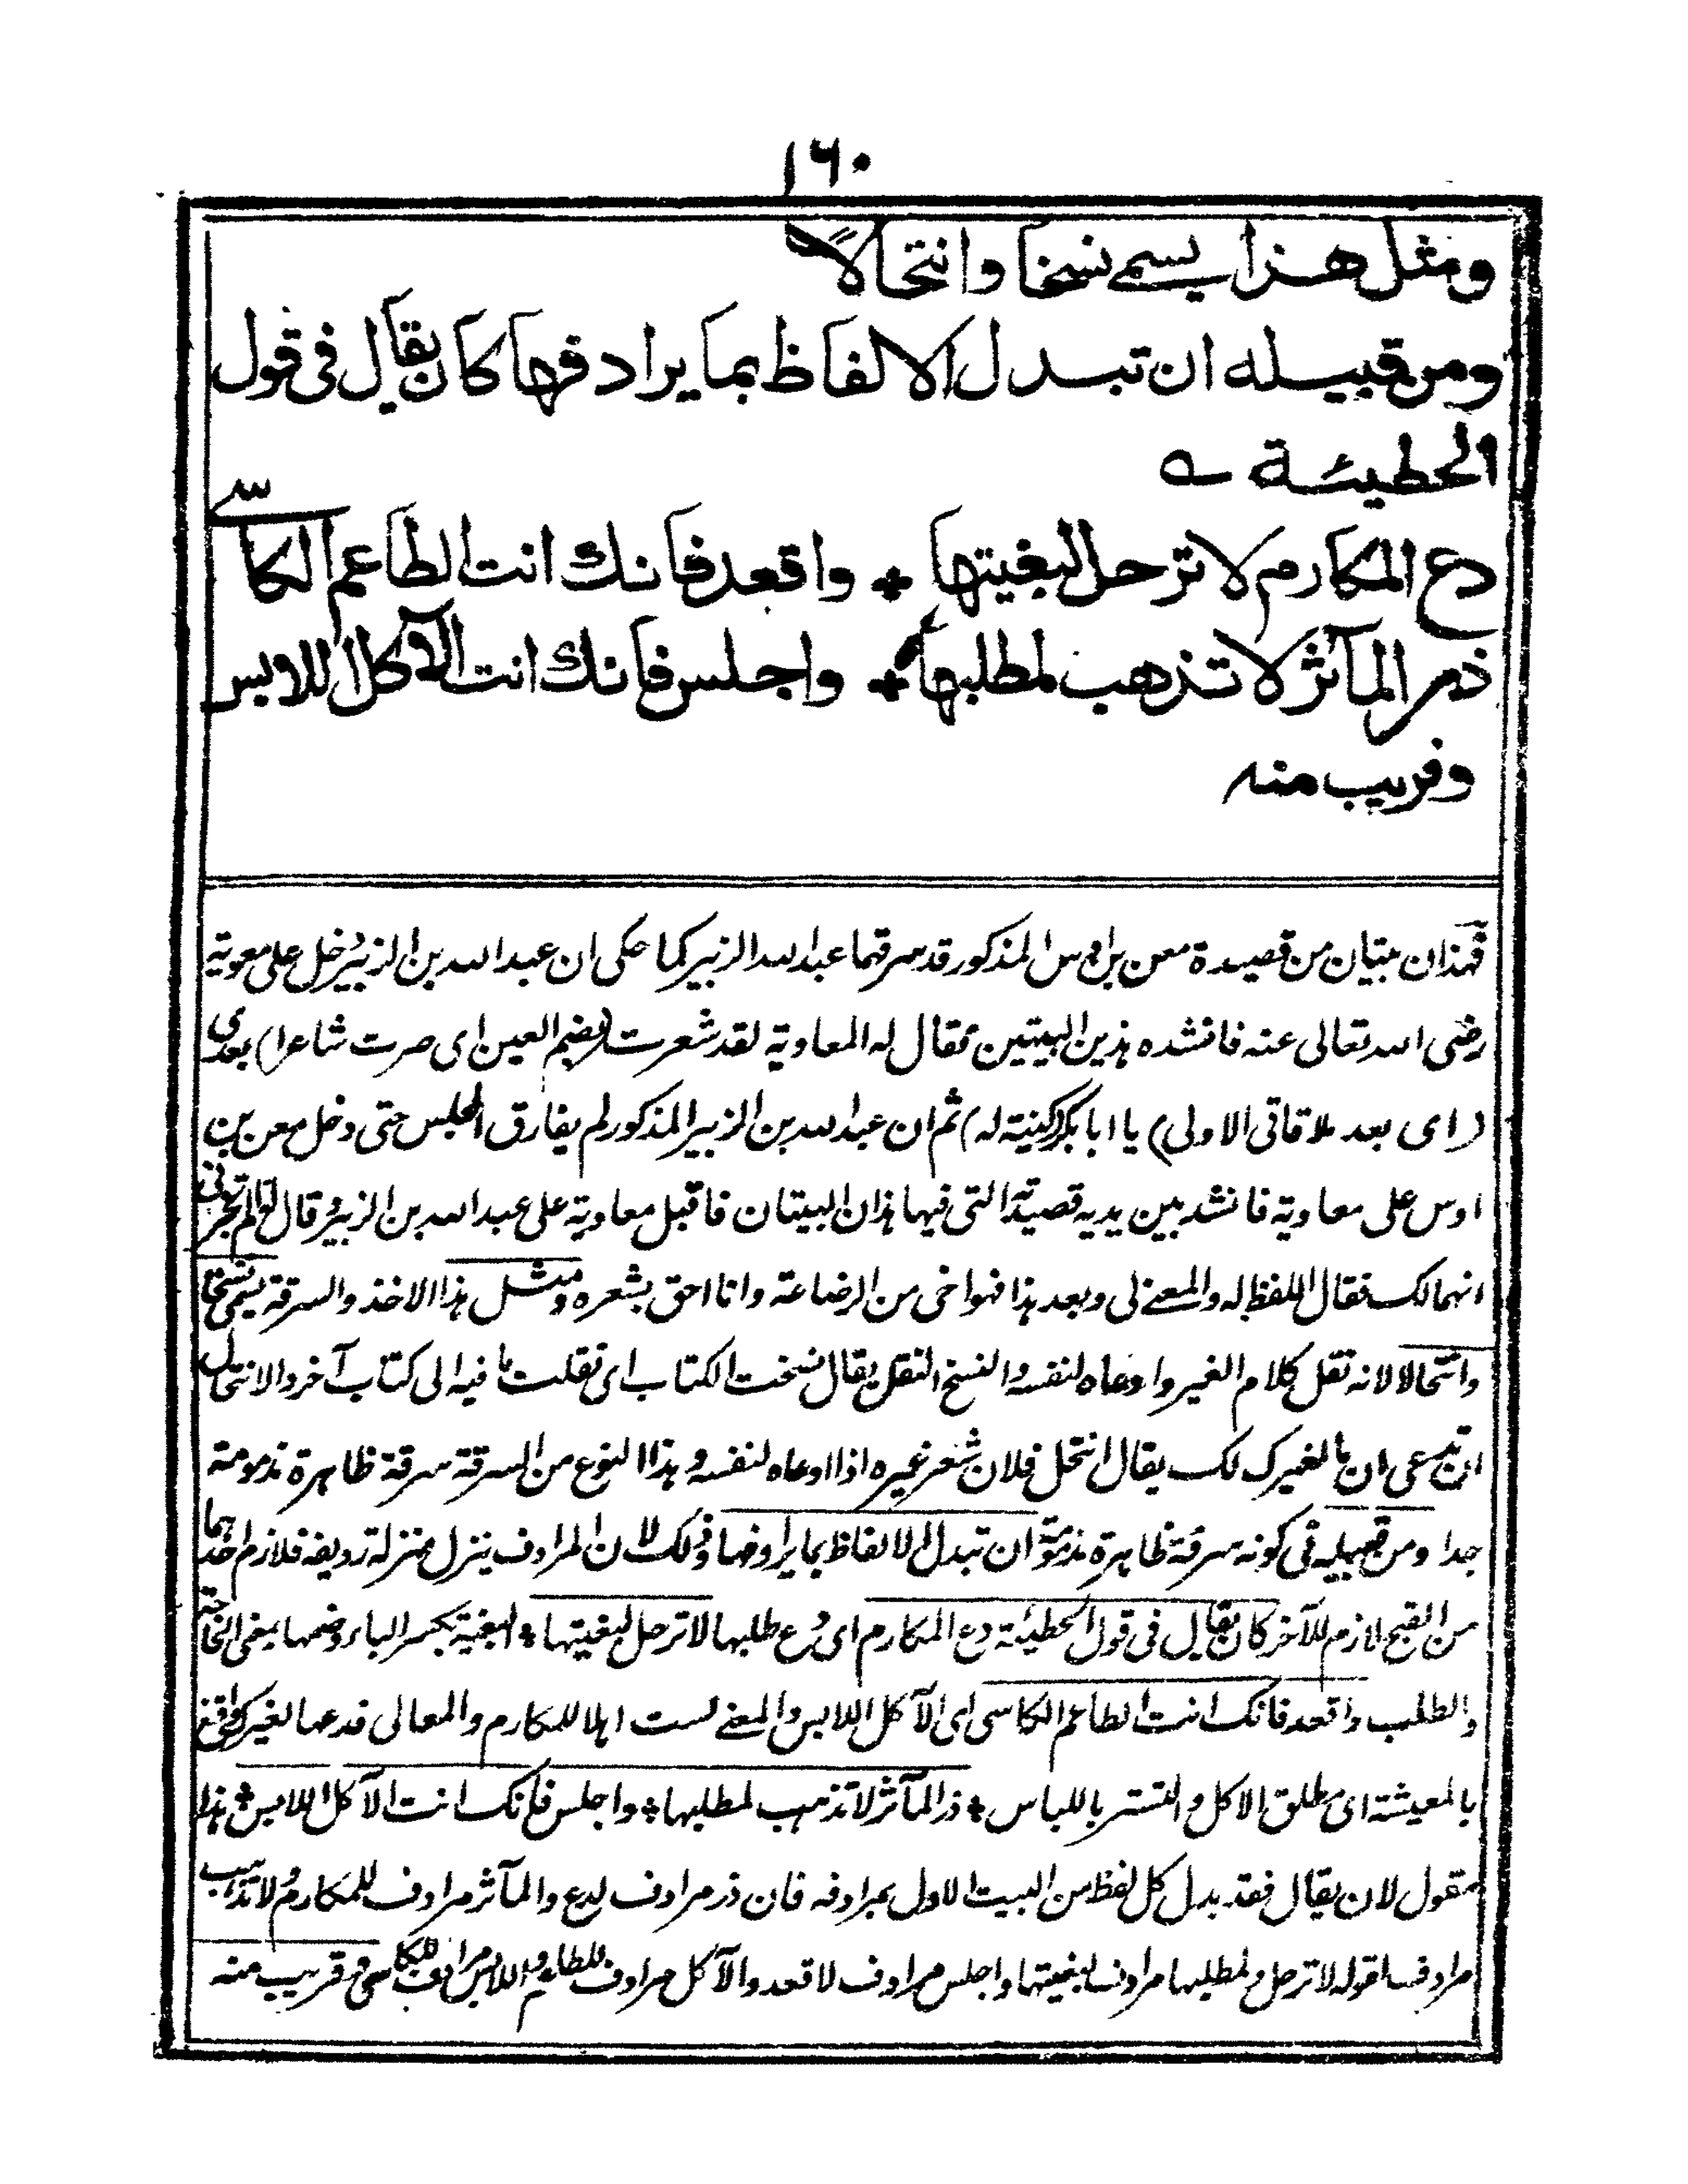 ١٦٠
ومثل هذا يسمے نسخا وانتحالاً
ومن قبيله ان تبدل الالفاظ بما يرادفها كان يقال فى قول
الحطيئة ؎
دع المكارم لا ترحل لبغيتها + واقعد فانك انت الطاعم الكاسے
ذر المآثر لا تذهب لمطلبها + واجلس فانك انت الآكل اللابس
وقريب منه
فهذان بيتان من قصيدة معن بن اوس المذكور قد سرقهما عبد الله الزبير كما حكى ان عبد الله بن الزبير دخل على معوية
رضى الله تعالى عنه فانشده هذين البيتين فقال له المعاوية لقد شعرت (بضم العين اى صرت شاعرا) بعدى
(اى بعد ملاقاتى الاولى) يا ابا بكر (كنيته له) ثم ان عبد الله بن الزبير المذكور لم يفارق المجلس حتى دخل معن بن
اوس على معاوية فانشد بين يديه قصيدته التى فيها هذان البيتان فاقبل معاوية على عبد الله بن الزبير وقال له الم تخبرنى
انهما لك فقال اللفظ له والمعنے لى وبعد هذا فهو اخى من الرضاعة وانا احق بشعره ومثل هذا الاخذ والسرقة يسمى نسخا
وانتحالا لانه نقل كلام الغير وادعاه لنفسه والنسخ النقل يقال نسخت الكتاب اى نقلت ما فيه الى كتاب آخر والانتحال
ان تدعى ان ما لغيرك لك يقال انتحل فلان شعر غيره اذا ادعاه لنفسه وهذا النوع من السرقة سرقة ظاهرة مذمومة
جدا ومن قبيله فى كونه سرقة ظاهرة مذمومة ان تبدل الالفاظ بما يرادفها وذلك لان المرادف ينزل منزلة رديفه فلازم احدهما
من القبح لازم للآخر كان يقال فى قول الحطيئة دع المكارم اى دع طلبها لا ترحل لبغيتها + البغية بكسر الباء وضمها بمعنى الحاجة
والطلب واقعد فانك انت الطاعم الكاسى اى الآكل اللابس والمعنے لست اهلا للمكارم والمعالى فدعها لغيرك واقنع
بالمعيشة اى مطلق الاكل والتستر باللباس + ذر المآثر لا تذهب لمطلبها + واجلس فانك انت الآكل اللابس + هذا
مقول لان يقال فقد بدل كل لفظ من البيت الاول بمرادفه فان ذر مرادف لدع والمآثر مرادف للمكارم ولا تذهب
مرادف لقوله لا ترحل ولمطلبها مرادف لبغيتها واجلس مرادف لاقعد والآكل مرادف للطاعم واللابس مرادف للكاسى وقريب منه